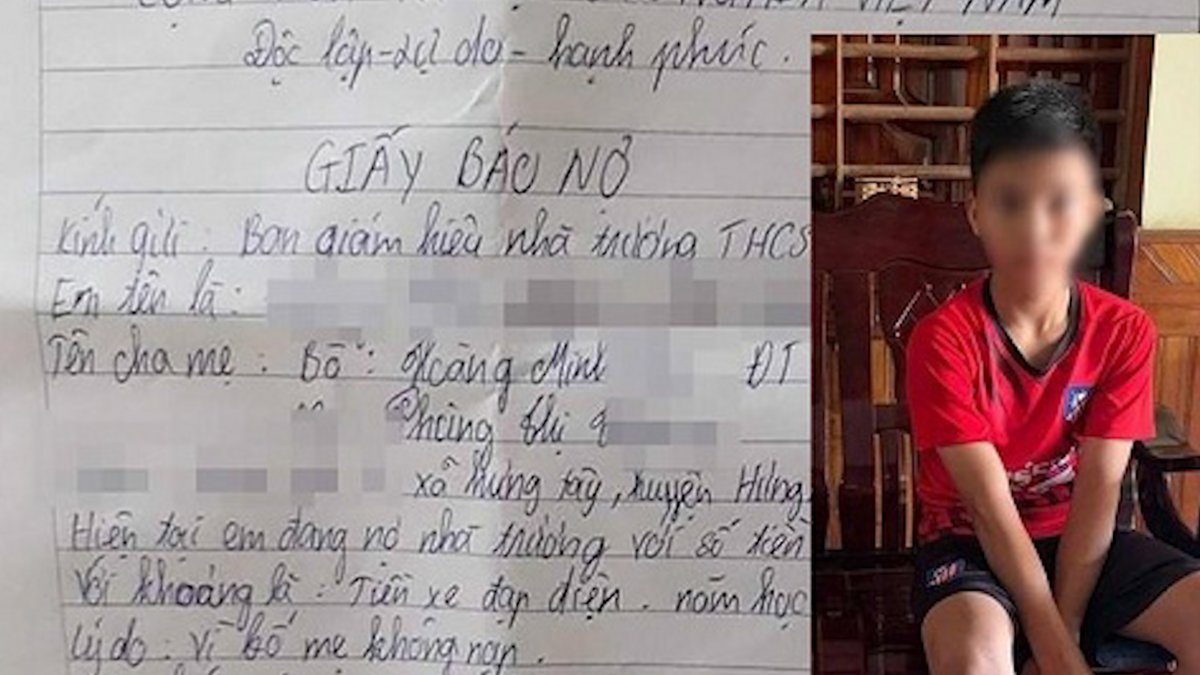 VIỆT NAM
Độc lập - tự do - hạnh phúc.
GIẤY BÁO NỢ
Kính gửi : Ban giám hiệu nhà trường THCS
Em tên là :
Tên cha mẹ : Bố : Hoàng Minh ĐT
Phùng thị
xã Hưng tây, huyện Hưng
Hiện tại em đang nợ nhà trường với số tiền
Với khoảng là : Tiền xe đạp điện . năm học
Lý do : Vì bố mẹ không nạp .